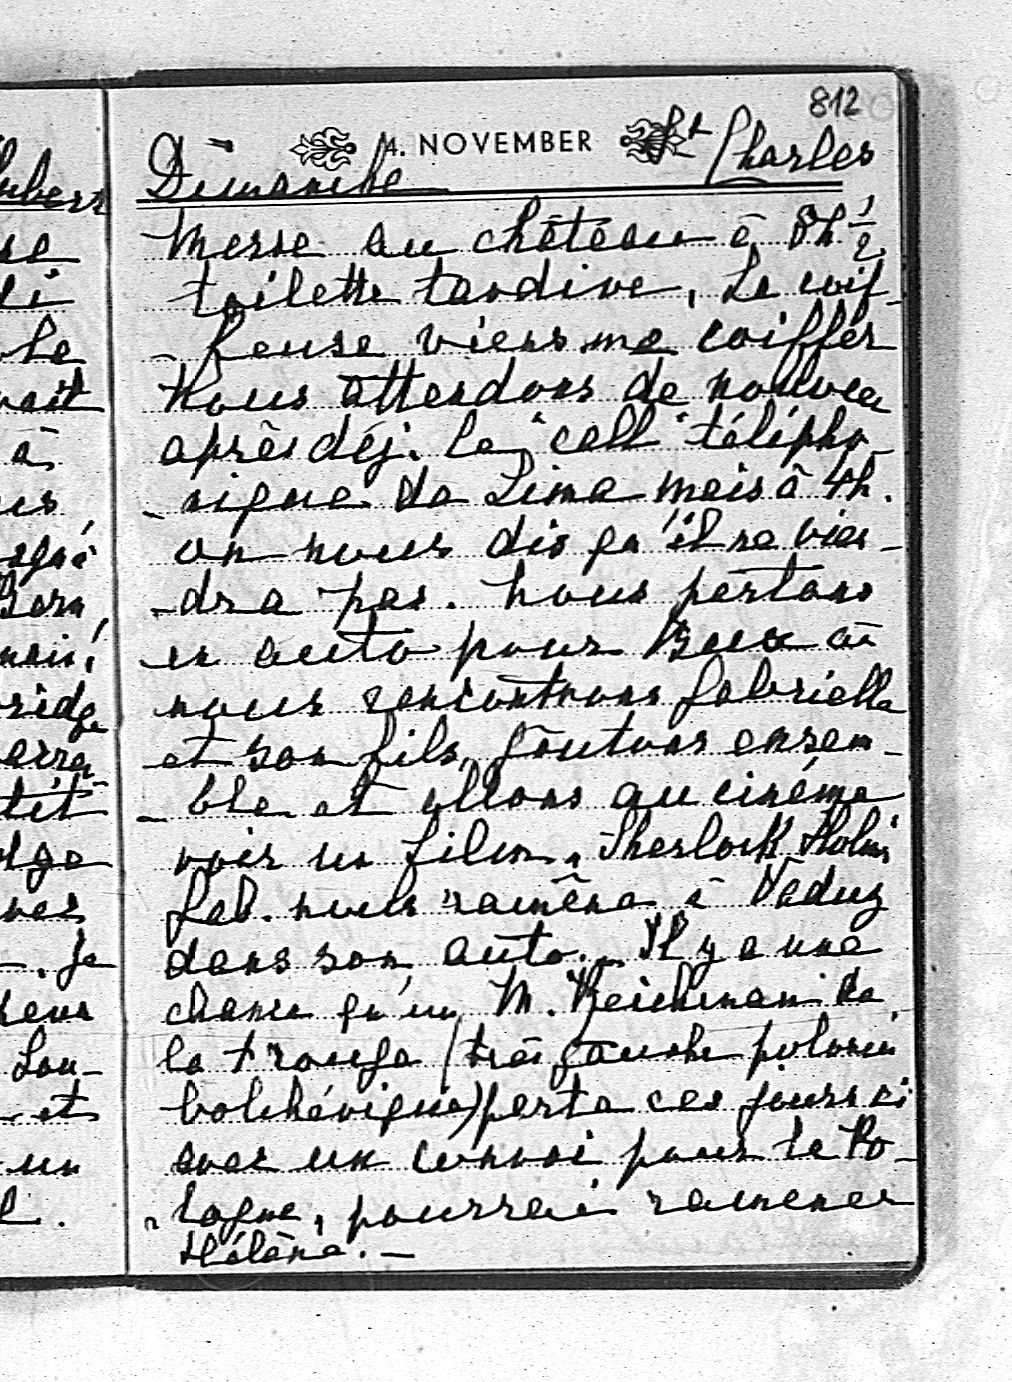 812
4. NOVEMBER
Dimanche St Charles
Messe au château à 8h 1/2
toilette tardive, La coif-
-feuse viens me coiffer
Nous attendons de nouveau
après déj. le "call" télépho-
-nique de Lima mais à 4h.
on nous dis qu'il ne vien-
-dra pas. Nous partons
en auto pour Bux où
nous rencontrons Gabrielle
et son fils, goutons ensem-
-ble et allons au cinéma
voir un film, Sherlock Holms
Gab. nous ramène à Vaduz
dans son auto. Il y a une
chance qu'un M. Reichman de
la + rouge (très gauche polonais
bolchévique) parte ces jours ci
avec un convoi pour la Po-
-logne, pourrai ramener
Hélène. -
ubert
se
di
ait
à
Born,
ridge
et
un
Je
Lou-